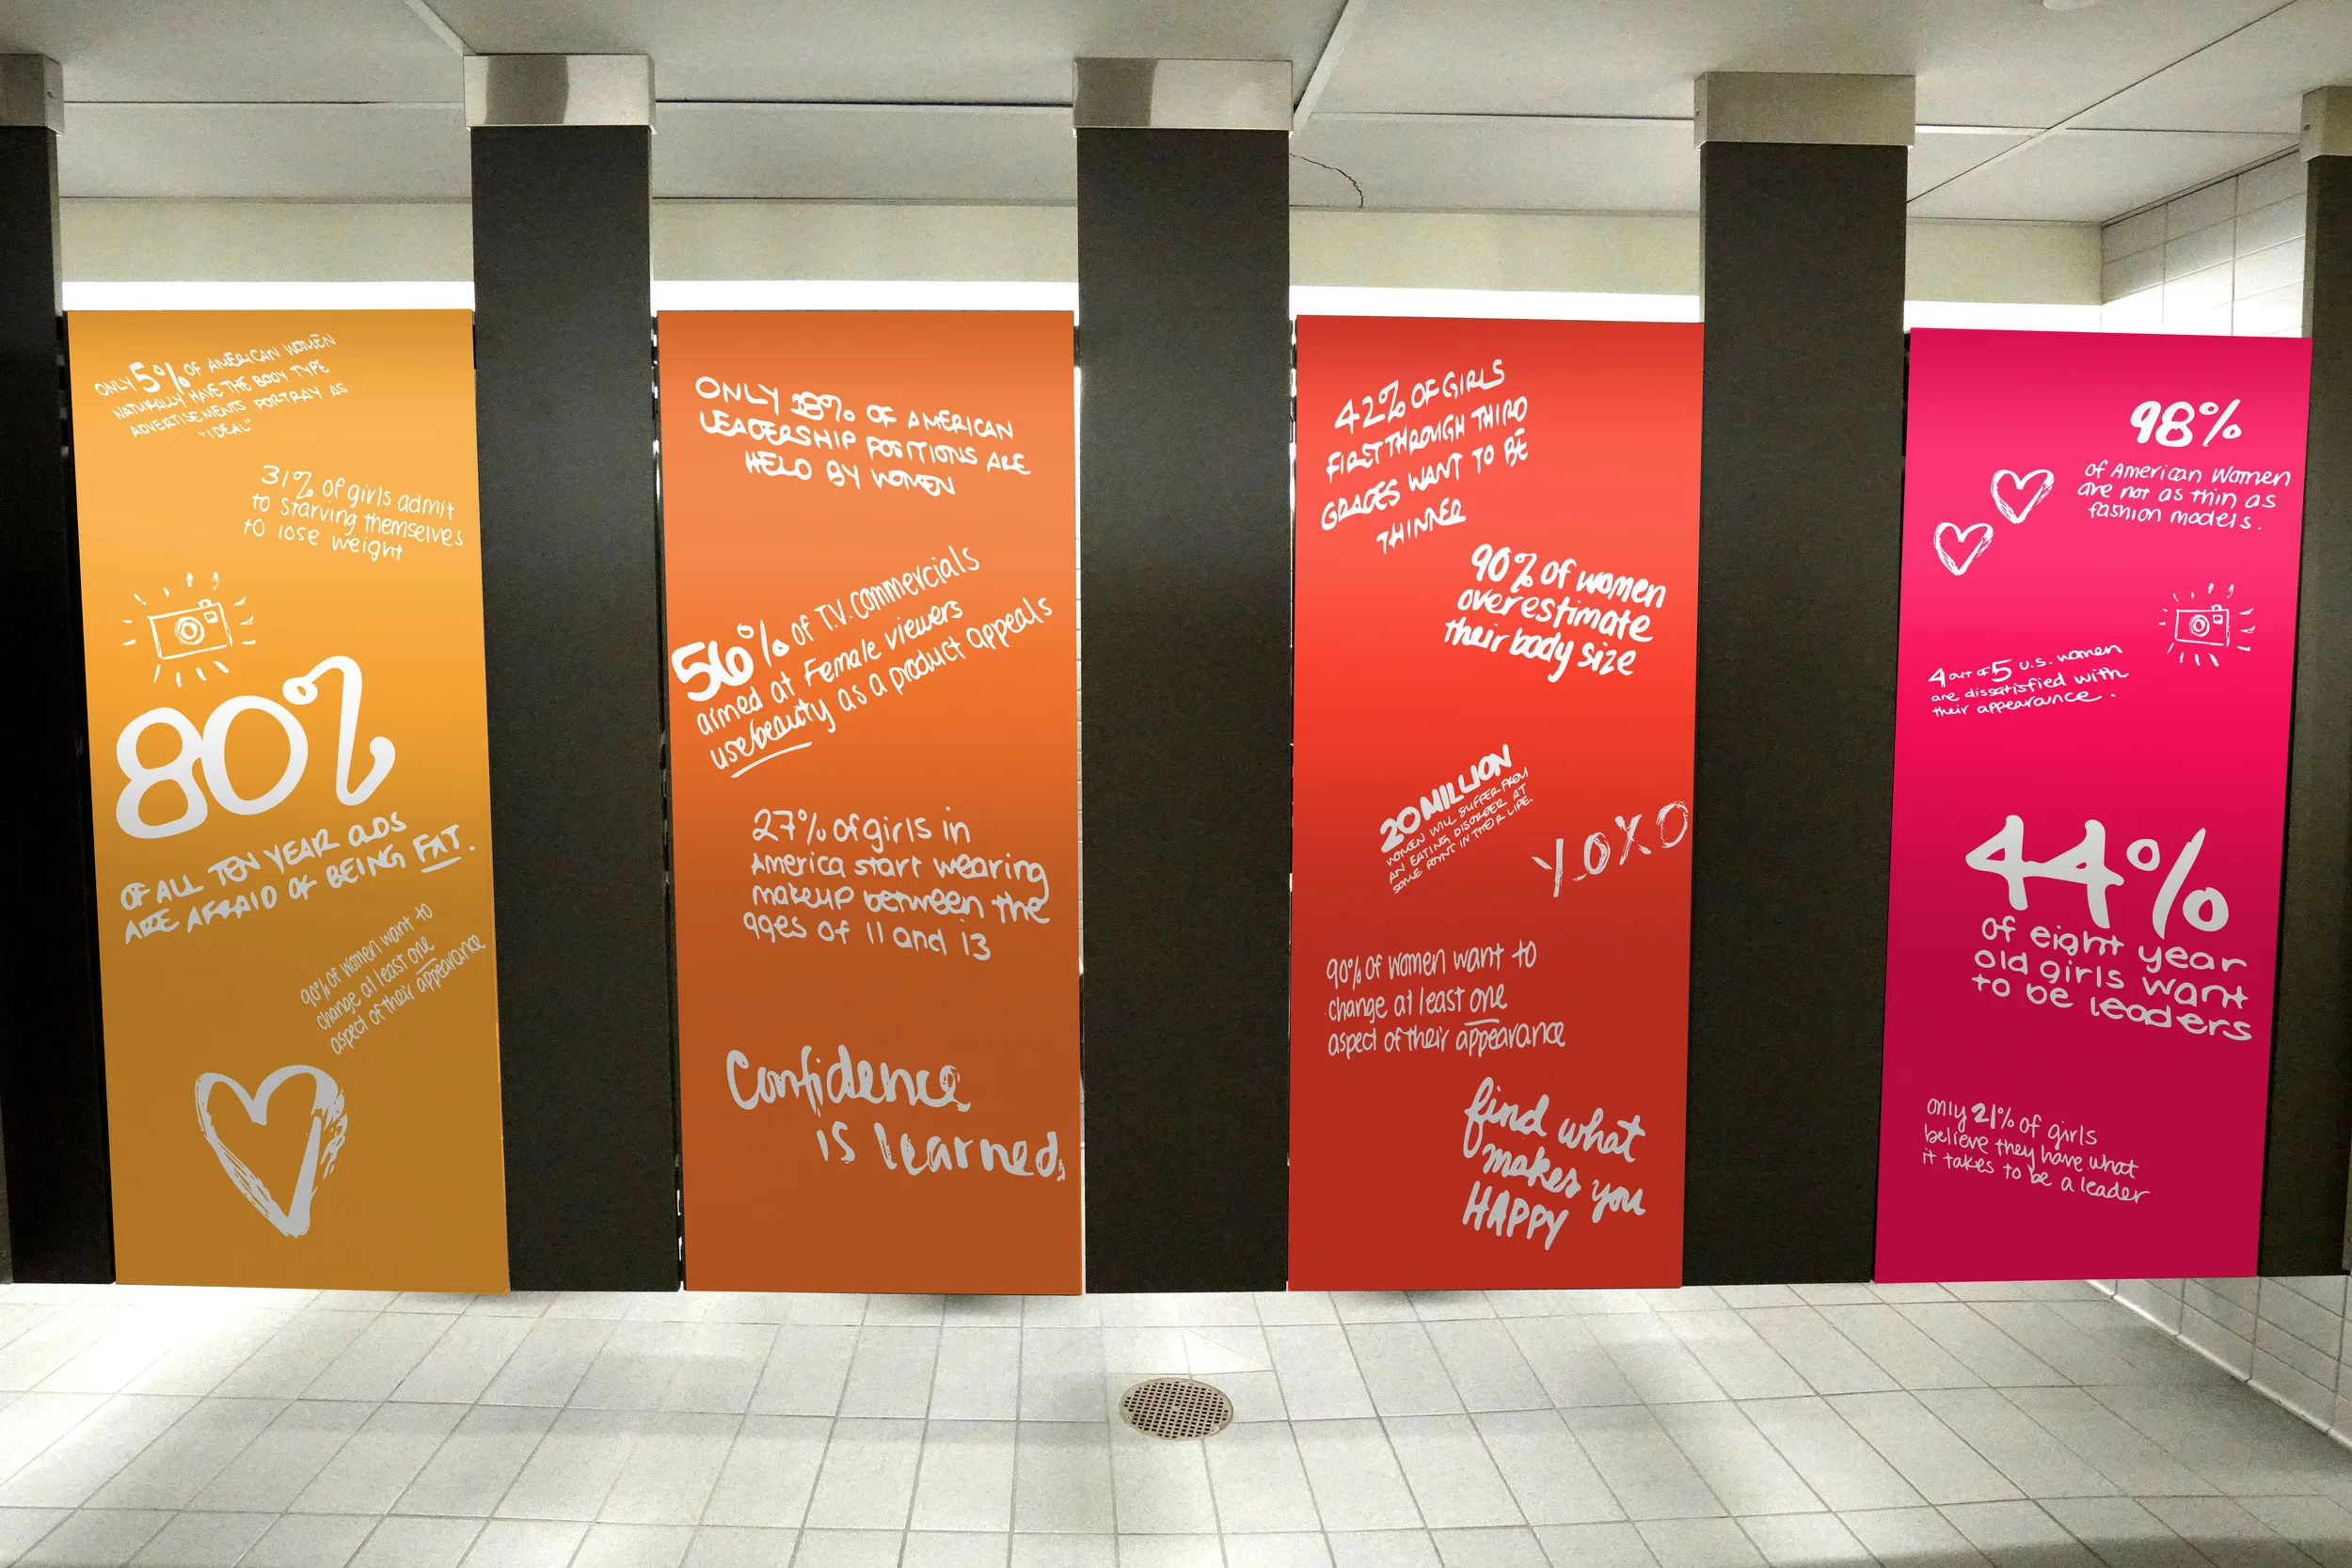 ONLY 5% OF AMERICAN WOMEN
NATURALLY HAVE THE BODY TYPE
ADVERTISEMENTS PORTRAY AS
"IDEAL"
31% of girls admit
to starving themselves
to lose weight
80%
OF ALL TEN YEAR OLDS
ARE AFRAID OF BEING FAT.
90% of women want to
change at least one
aspect of their appearance
ONLY 18% OF AMERICAN
LEADERSHIP POSITIONS ARE
HELD BY WOMEN
56% of T.V. commercials
aimed at Female viewers
use beauty as a product appeals
27% of girls in
America start wearing
makeup between the
ages of 11 and 13
Confidence
is learned,
42% OF GIRLS
FIRST THROUGH THIRD
GRADES WANT TO BE
THINNER
90% of women
overestimate
their body size
20 MILLION
WOMEN WILL SUFFER FROM
AN EATING DISORDER AT
SOME POINT IN THEIR LIFE.
XOXO
90% of women want to
change at least one
aspect of their appearance
find what
makes you
HAPPY
98%
of American Women
are not as thin as
fashion models.
4 out of 5 U.S. women
are dissatisfied with
their appearance.
44%
of eight year
old girls want
to be leaders
only 21% of girls
believe they have what
it takes to be a leader